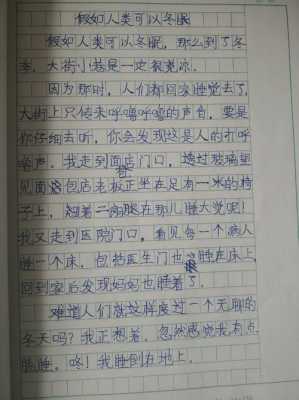 假如人类可以冬眠
假如人类可以冬眠，那么到了冬
季，大街小巷是一定很
因为那时，人们都回家睡觉去了，
大街上只传来呼噜呼噜的声音，要是
你仔细去听，你会发现这是人的打呼
噜声。我走到面店门口，透过玻璃里
见面包店老板正坐在足有一米的椅
子上，翘着二郎腿在那儿睡大觉呢！
我又走到医院门口，看见每一个病人
睡一个床，包括医生们也睡在床上，
回到家后发现妈妈也睡着了。
难道人们就这样度过一个无聊的
冬天吗？我正想着，忽然感觉我有点
瞌睡，咚！我睡倒在地上。